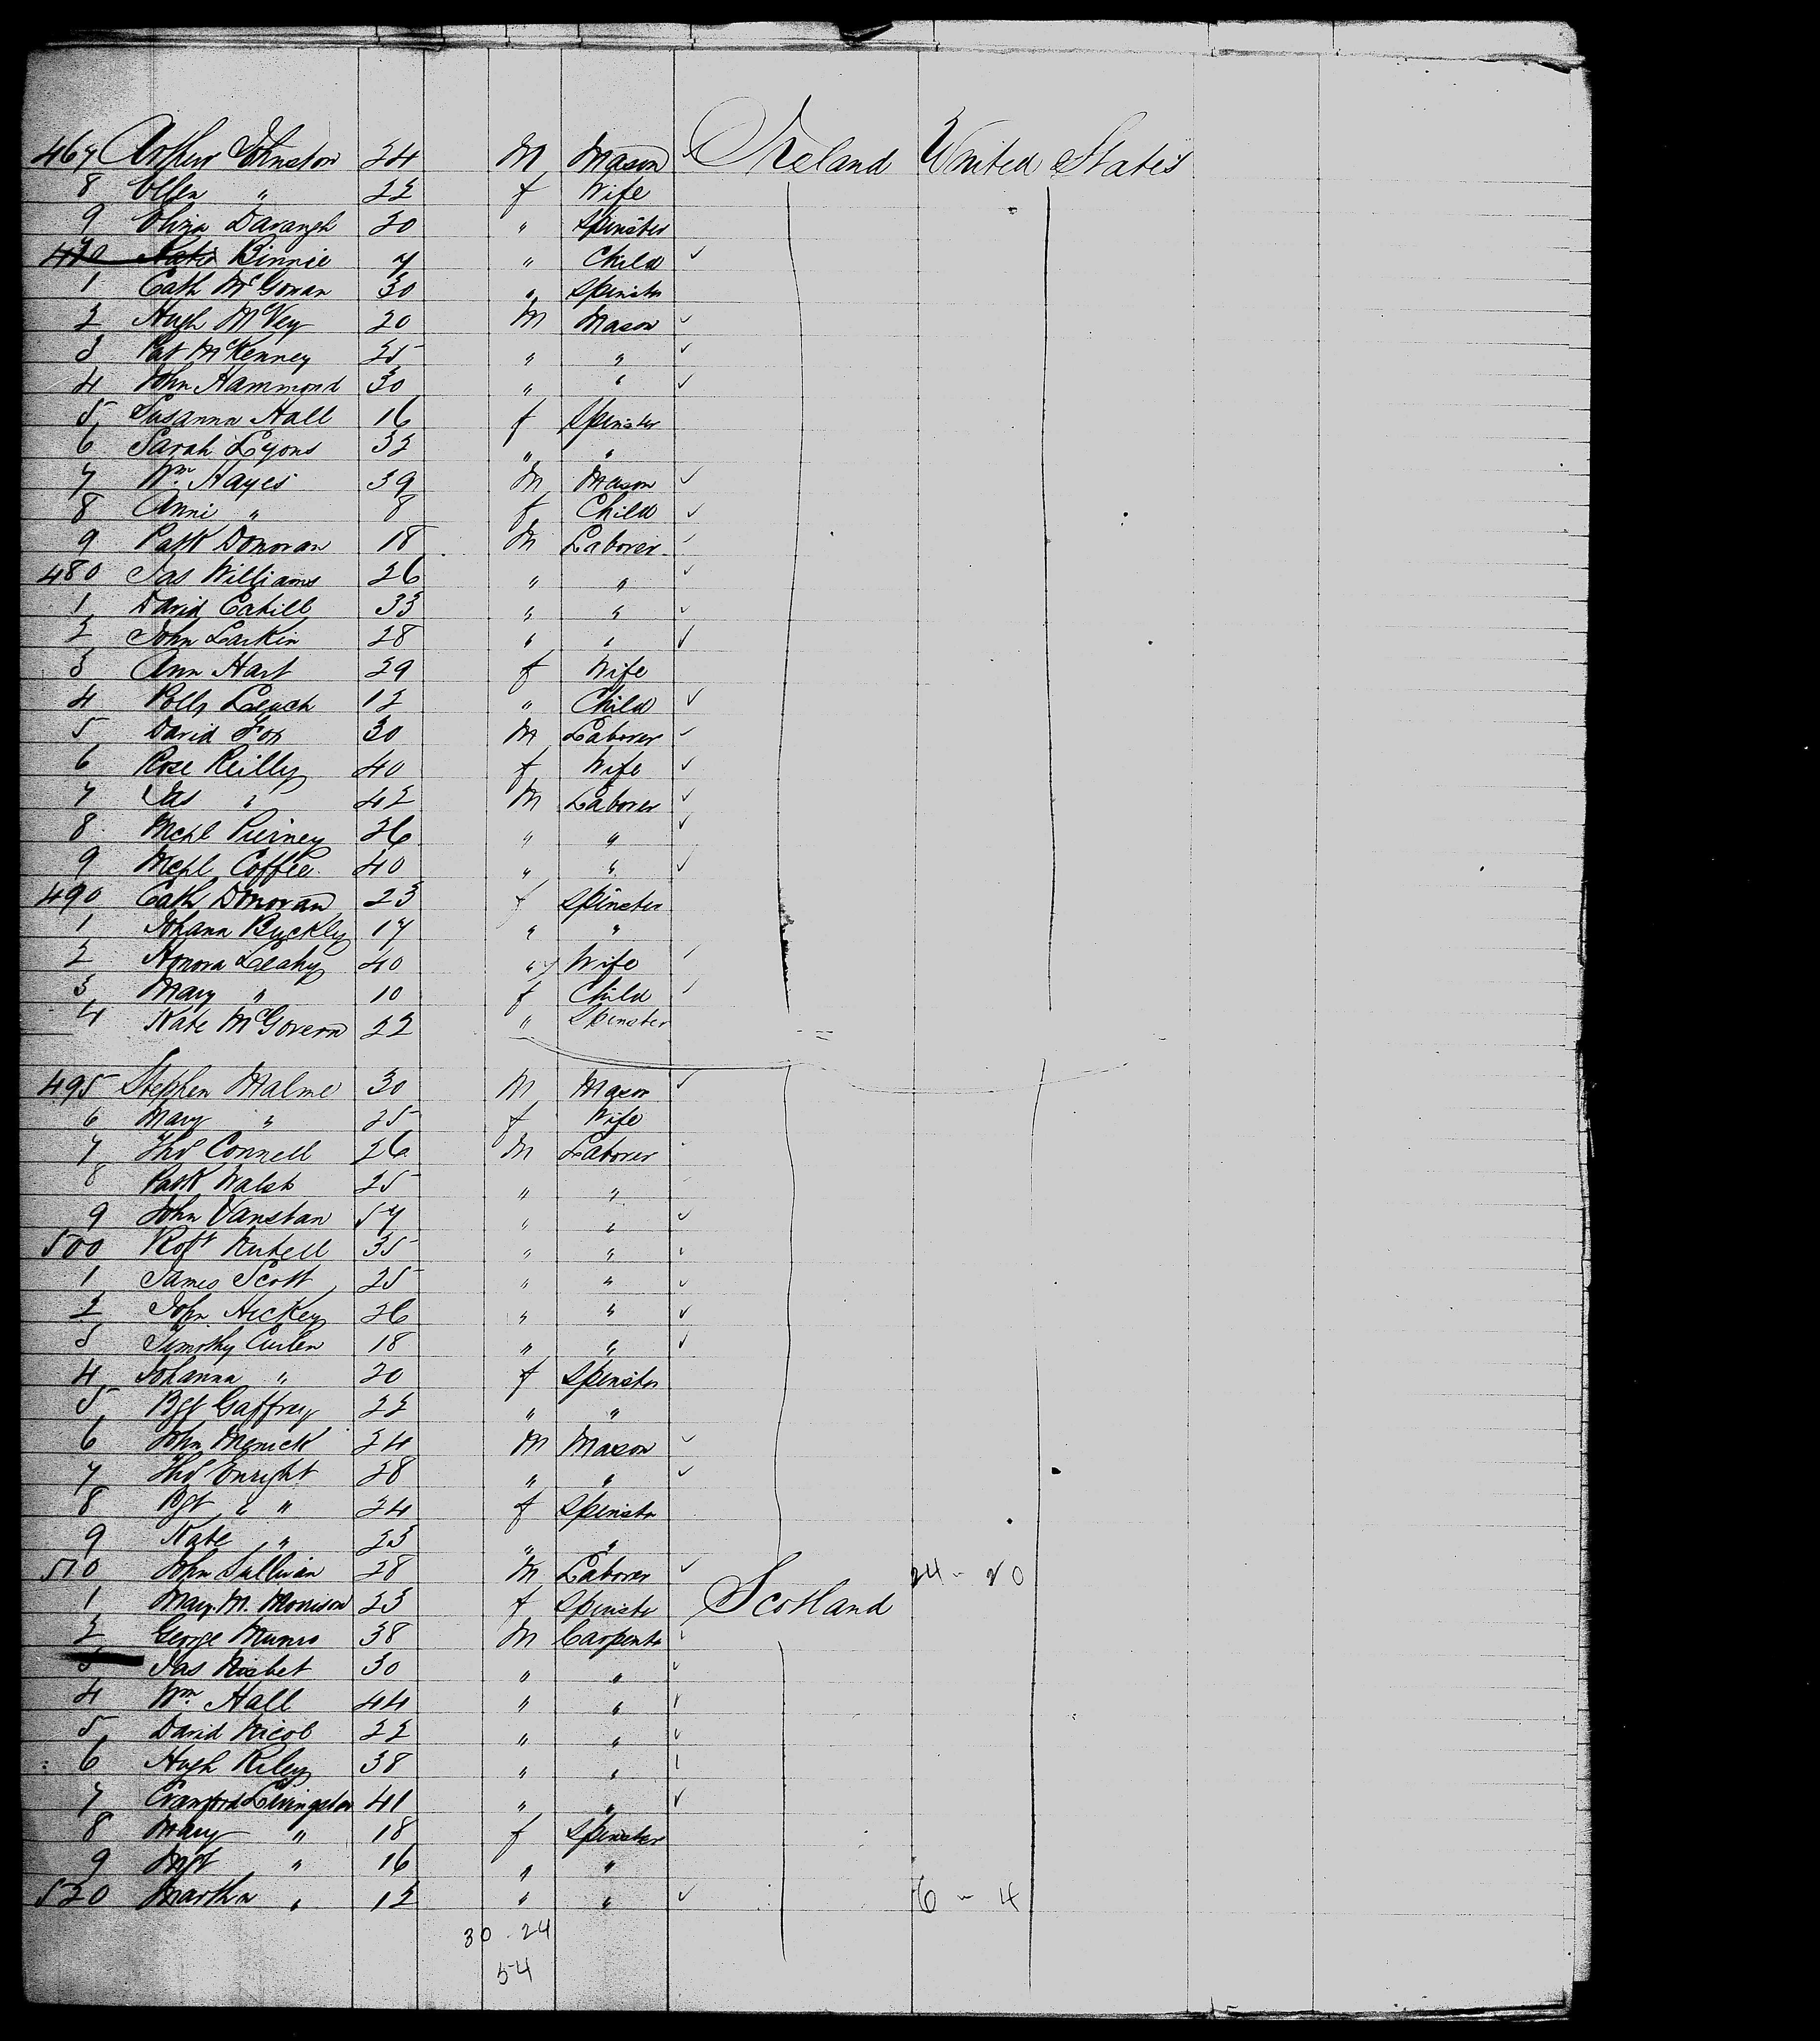 467 Arthur Johnston 24 M Mason Ireland United States
8 Ellen " 22 f Wife
9 Eliza Davangh 20 " Spinster
470 Katie Binnie 7 " Child
1 Cath McGowan 30 " Spinster
2 Hugh McVey 20 M Mason
3 Pat McKenney 25 " "
4 John Hammond 30 " "
5 Susanna Hall 16 f Spinster
6 Sarah Lyons 32 " "
7 Wm Hayes 39 M Mason
8 Anni " 8 f Child
9 Patk Donovan 18 M Laborer
480 Jas Williams 26 " "
1 David Cahill 33 " "
2 John Larkin 28 " "
3 Ann Hart 29 f Wife
4 Polly Leach 12 " Child
5 David Fox 30 M Laborer
6 Rose Reilly 40 f Wife
7 Jas " 42 M Laborer
8 Mchl Pierney 26 " "
9 Mchl Coffee 40 " "
490 Cath Donovan 23 f Spinster
1 Johann Buckley 17 " "
2 Honora Leahy 40 " Wife
3 Mary " 10 f Child
4 Kate McGovern 22 " Spinster
495 Stephen Malme 30 M Mason
6 Mary " 25 f Wife
7 Thos Connell 26 M Laborer
8 Patk Walsh 25 " "
9 John Vanstan 57 " "
500 Robt 35 " "
1 James Scott 25 " "
2 John Hickey 26 " "
3 Timothy 18 " "
4 Johanna " 20 f Spinster
5 Bgt Gaffney 22 " "
6 John 24 M Mason
7 Thos Enright 28 " "
8 Bgt " " 24 f Spinster
9 Kate " 23 " "
510 John Sullivan 28 M Laborer 24 - 20
1 Mary M. Morrison 23 f Spinster Scotland
2 George Munro 38 M Carpenter
3 Jas Nisbet 30 " "
4 Wm Hall 44 " "
5 David Nicol 22 " "
6 Hugh Riley 38 " "
7 Crawford Livingston 41 " "
8 Mary " 18 f Spinster
9 Mgt " 16 " "
520 Martha " 12 " " 6 - 4
30 . 24
54